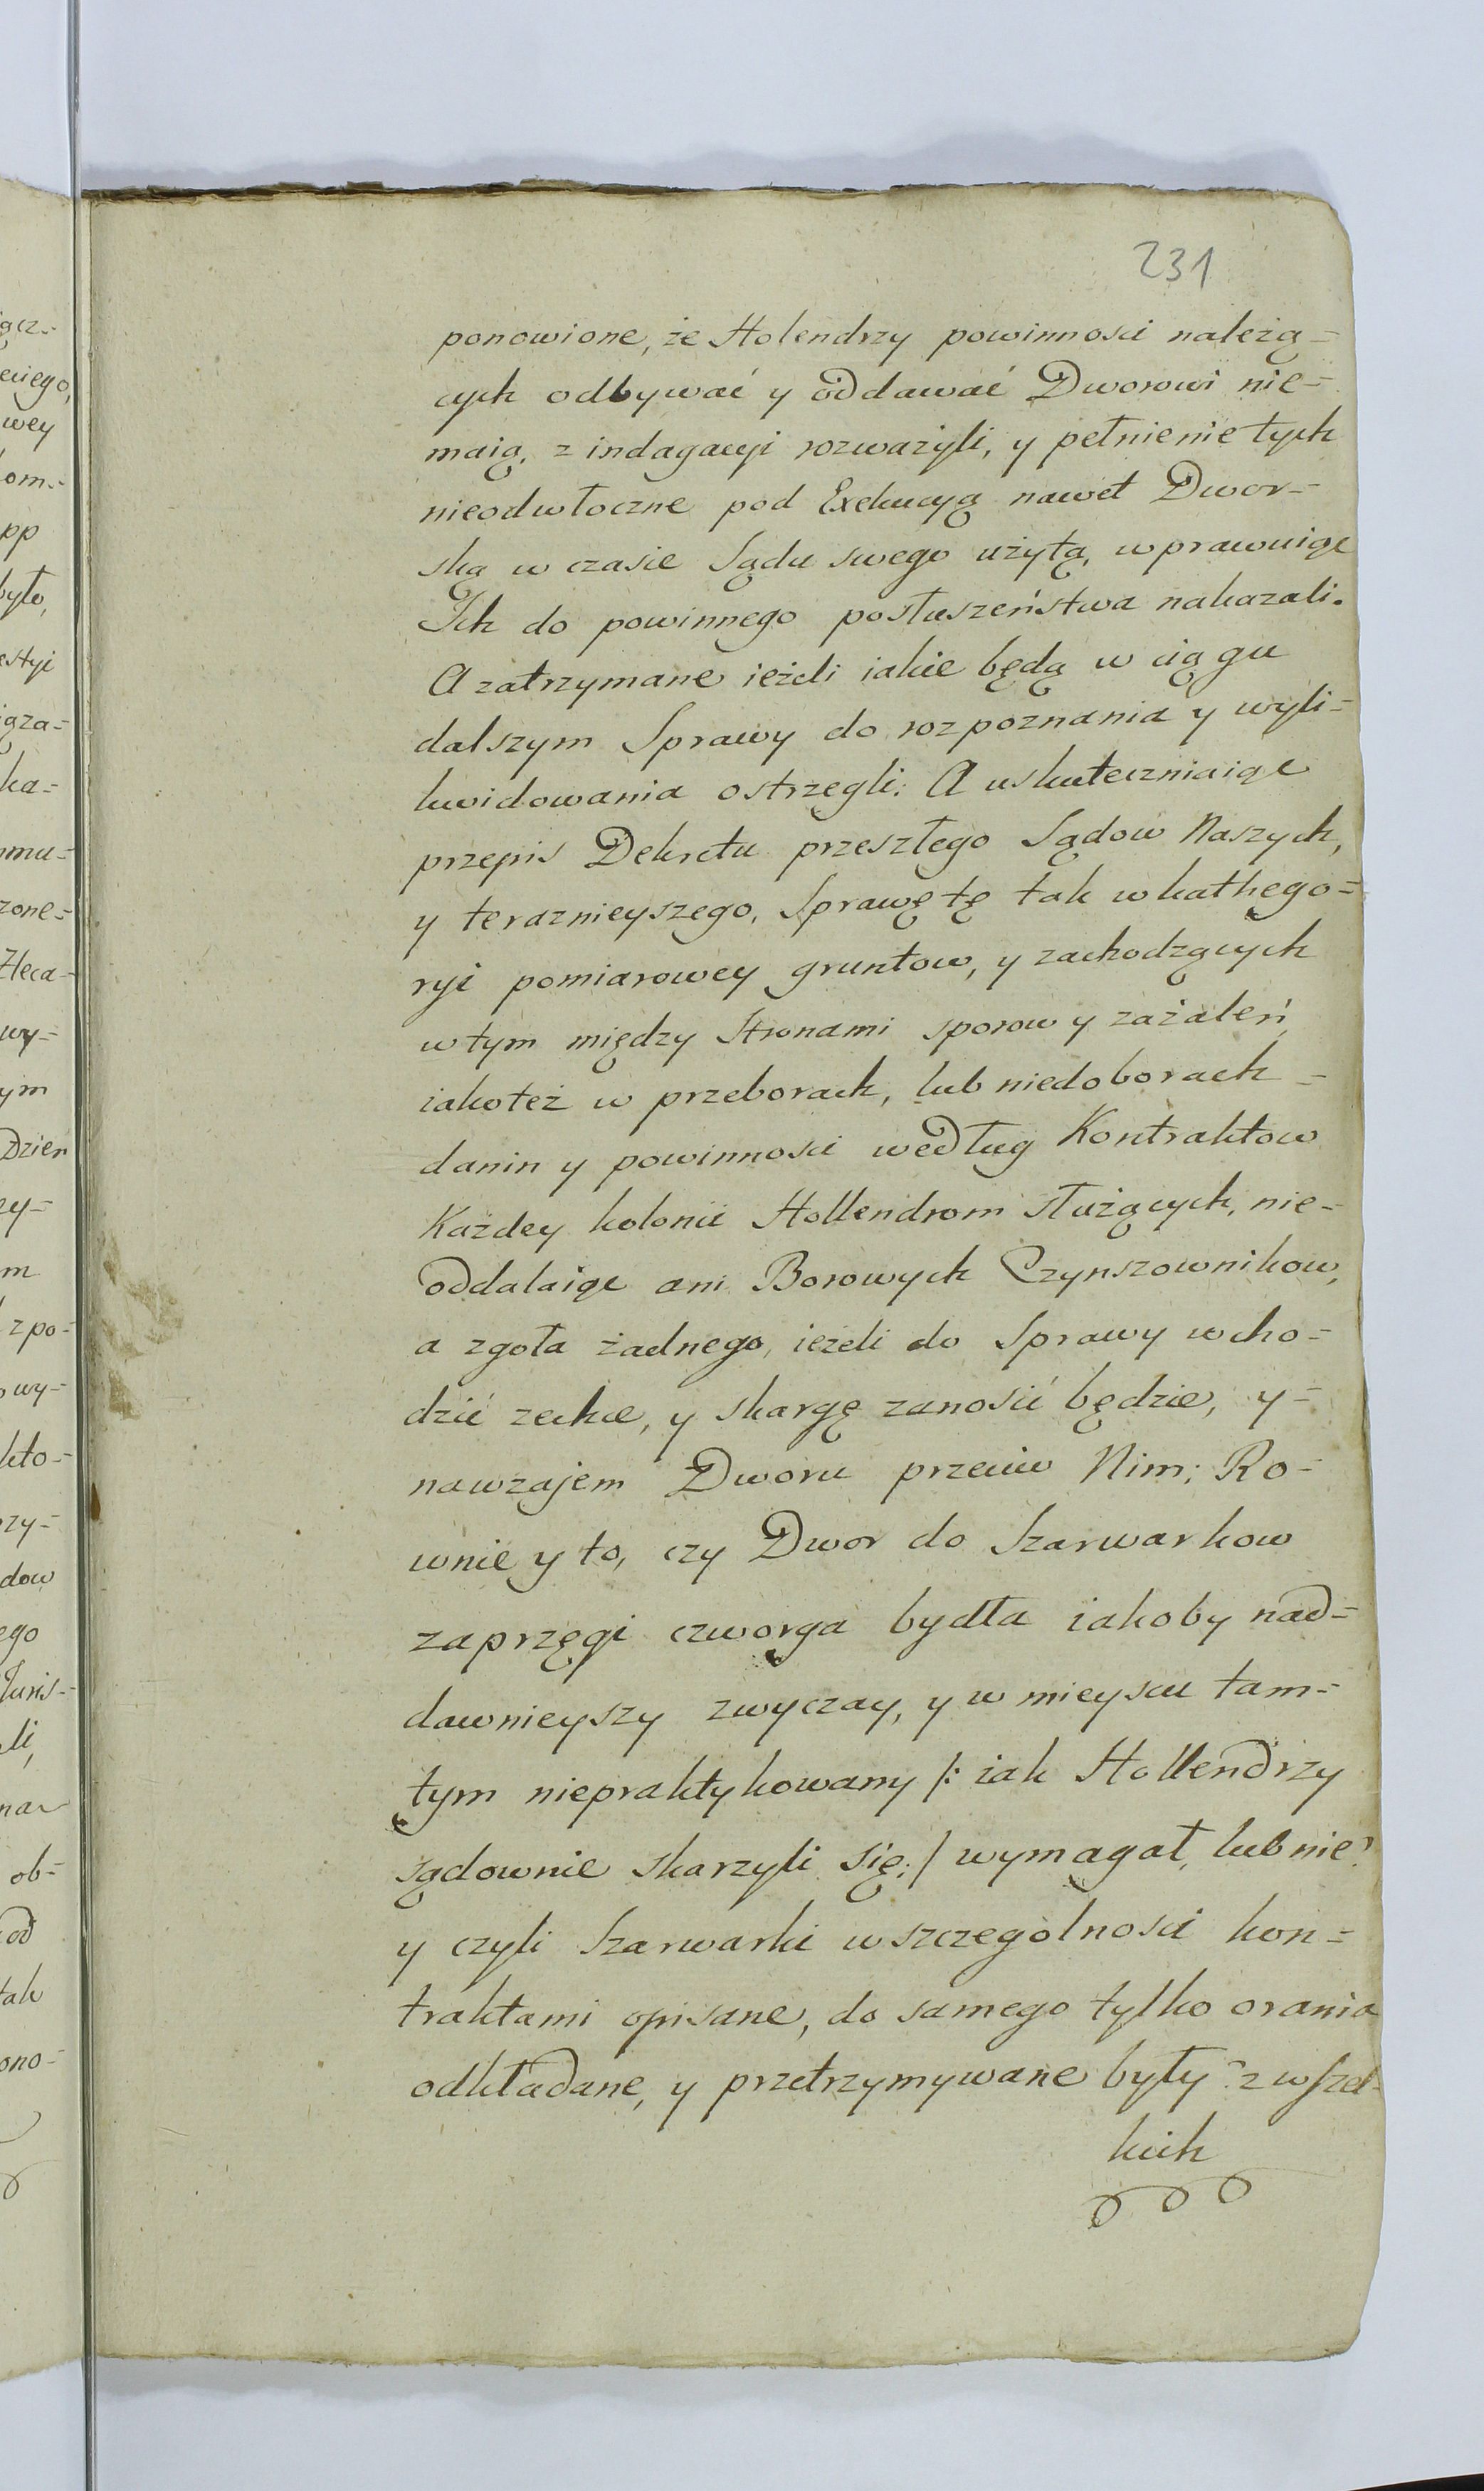 231
ponowione, że Holendrzy powinnosci należą=
cych odbywać y oddawać Dworowi nie=
maią, z indagacyi rozważyli, y pełnienie tych
nieodwłoczne pod Exekucyą nawet Dwor=
ską w czasie Sądu swego użytą, wprawuiąc
Ich do powinnego posłuszeństwa nakazali.
A zatrzymane ieżeli iakie będą w ciągu
dalszym Sprawy do rozpoznania y wyli=
kwidowania ostrzegli: A uskuteczniaiąc
przepis Dekretu przeszłego Sądow Naszych,
y teraznieyszego, Sprawę tę tak w kathego=
ryi pomiarowey gruntow, y zachodzących
w tym między Stronami sporow y zażaleń,
iakoteż w przeborach, lub niedoborach =
danin y powinnosci według Kontraktow
Każdey kolonii Hollendrom służących, nie=
oddalaiąc ani Borowych Czynszownikow,
a zgoła żadnego, ieżeli do Sprawy wcho=
dzić zechce, y skargę zanosić będzie, y=
nawzajem Dworu przeciw Nim; Ro=
wnie y to, czy Dwor do Szarwarkow
zaprzęgi czworga bydła iakoby nad=
dawnieyszy zwyczay, y w mieyscu tam=
tym niepraktykowany /: iak Hollendrzy
sądownie skarzyli się :/ wymagał, lub nie?
y czyli Szarwarki w szczegolnosci kon=
traktami opisane, do samego tylko orania
odkładane, y przetrzymywane były? z wszel=
kich
ącz=
eciego,
wey
om=
pp
było,
estyi
iąza=
ka=
mu=
zone=
Zleca=
wy=
ym
Dzień
zy=
m
z po=
wy=
kto=
rzy=
dow
ego
Juris=
li,
na
ob=
od
tak
ono=